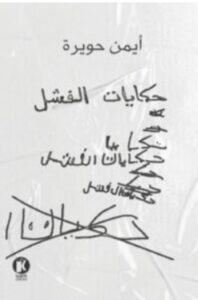 أيمن حويرة
حكايات الفشل
حكايا
حكايات الفشل
حكايات الفشل
حكايات